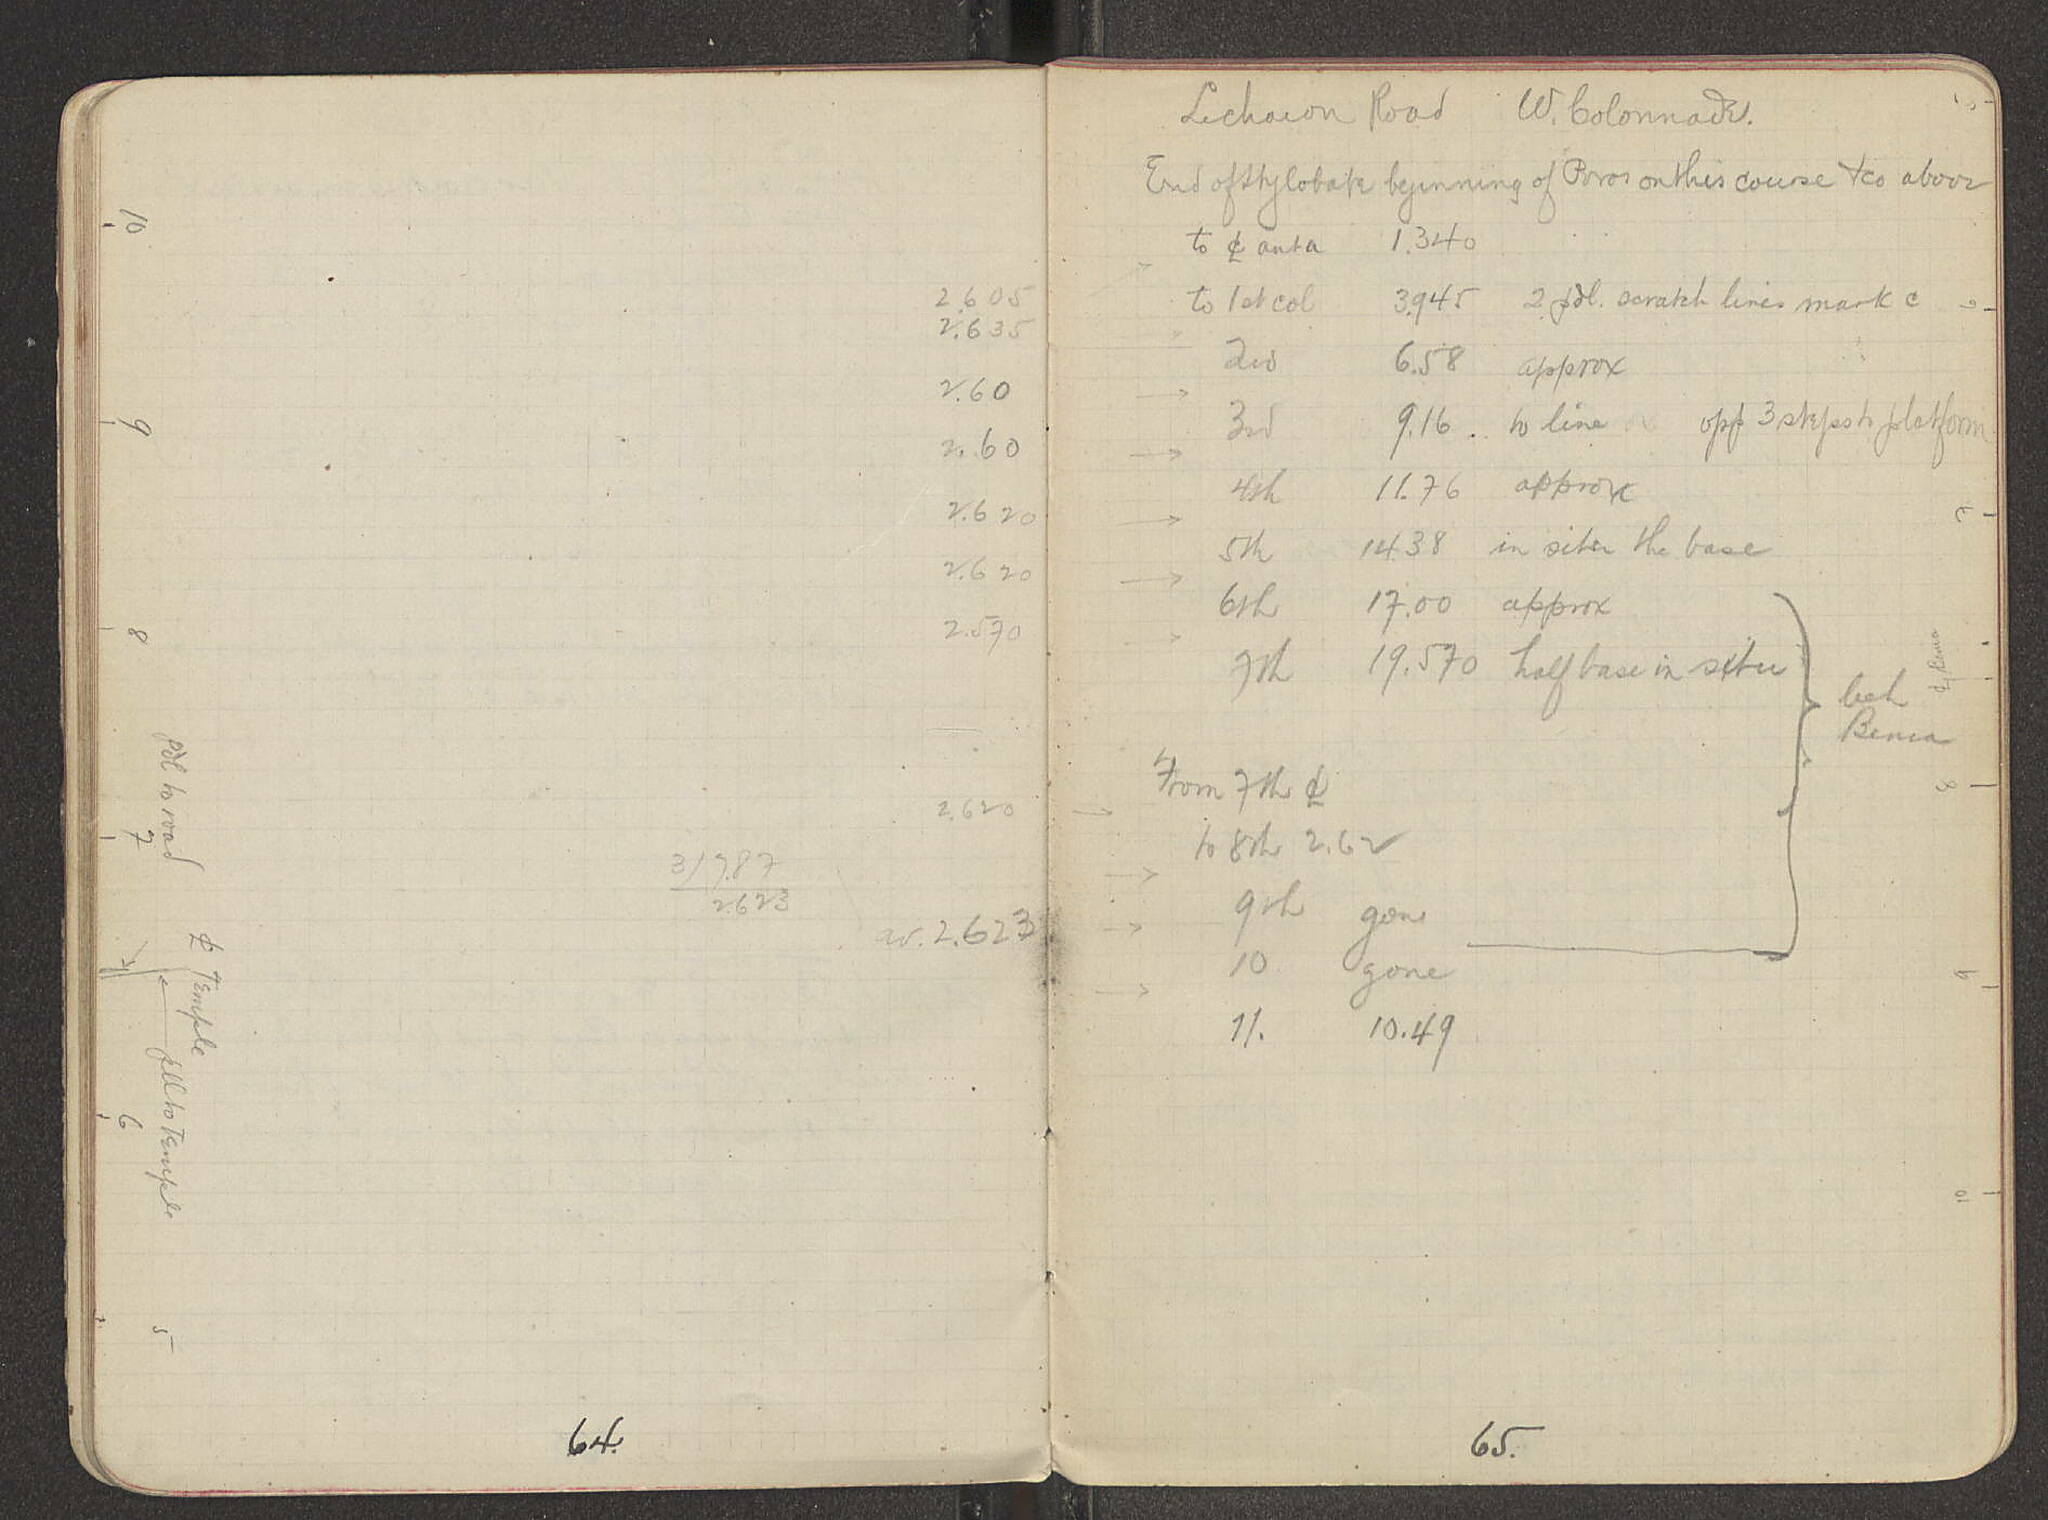 10
9
8
7
6
5
pll to road
℄ Temple
pll to Temple
2.605
2.635
2.60
2.60
2.620
2.620
2.570
2.620
3/7.87
2.623
av. 2.623
64.
Lechaeon Road W. Colonnade.
End of stylobate beginning of Poros on this course & co above
to ℄ anta 1.340
to 1st col 3.945 2 pll. scratch lines mark c
2nd 6.58 approx
3rd 9.16 .. to line opp 3 steps to platform
4th 11.76 approx
5th 14.38 in situ the base
6th 17.00 approx
7th 19.570 half base in situ
Bema
From 7th ℄
to 8th 2.62
9th gone
10 gone
11. 10.49
8
9
10
65.